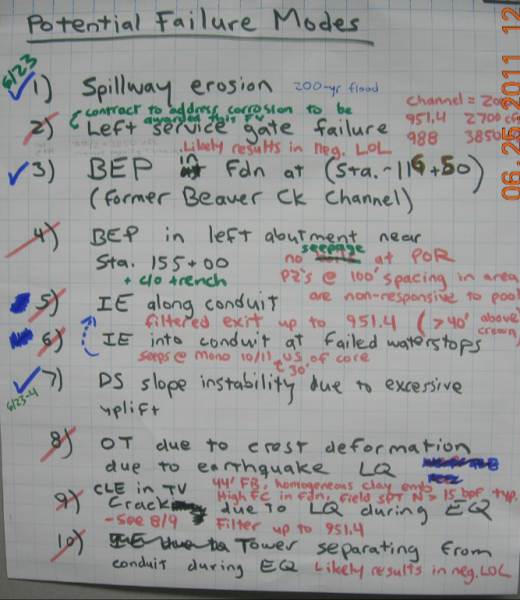 Potential Failure Modes
6/23
1) Spillway erosion 200-yr flood
{contract to address corrosion to be
awarded this FY
channel = 200
951.4 2700 cfs
988 3850
2) Left service gate failure
Likely results in neg. LOL
3) BEP in Fdn at (Sta. ~116+50)
(former Beaver Ck Channel)
4) BEP in left abutment near
Sta. 155+00 no seepage at POR
+ c/o trench
PZ's @ 100' spacing in area
are non-responsive to pool
5) IE along conduit
filtered exit up to 951.4 (>40' above
crown)
6) IE into conduit at failed waterstops
seeps @ mono 10/11, US of core
~30'
7) DS slope instability due to excessive
6/23-4
uplift
8) OT due to crest deformation
due to earthquake LQ
44' FB, homogeneous clay emb.
High FC in fdn, field SPT N > 15 bpf typ.
9) CLE in TV
Cracking due to LQ during EQ
-See 8/9 Filter up to 951.4
10) IE due to Tower separating from
conduit during EQ Likely results in neg. LOL
06 25 2011 12